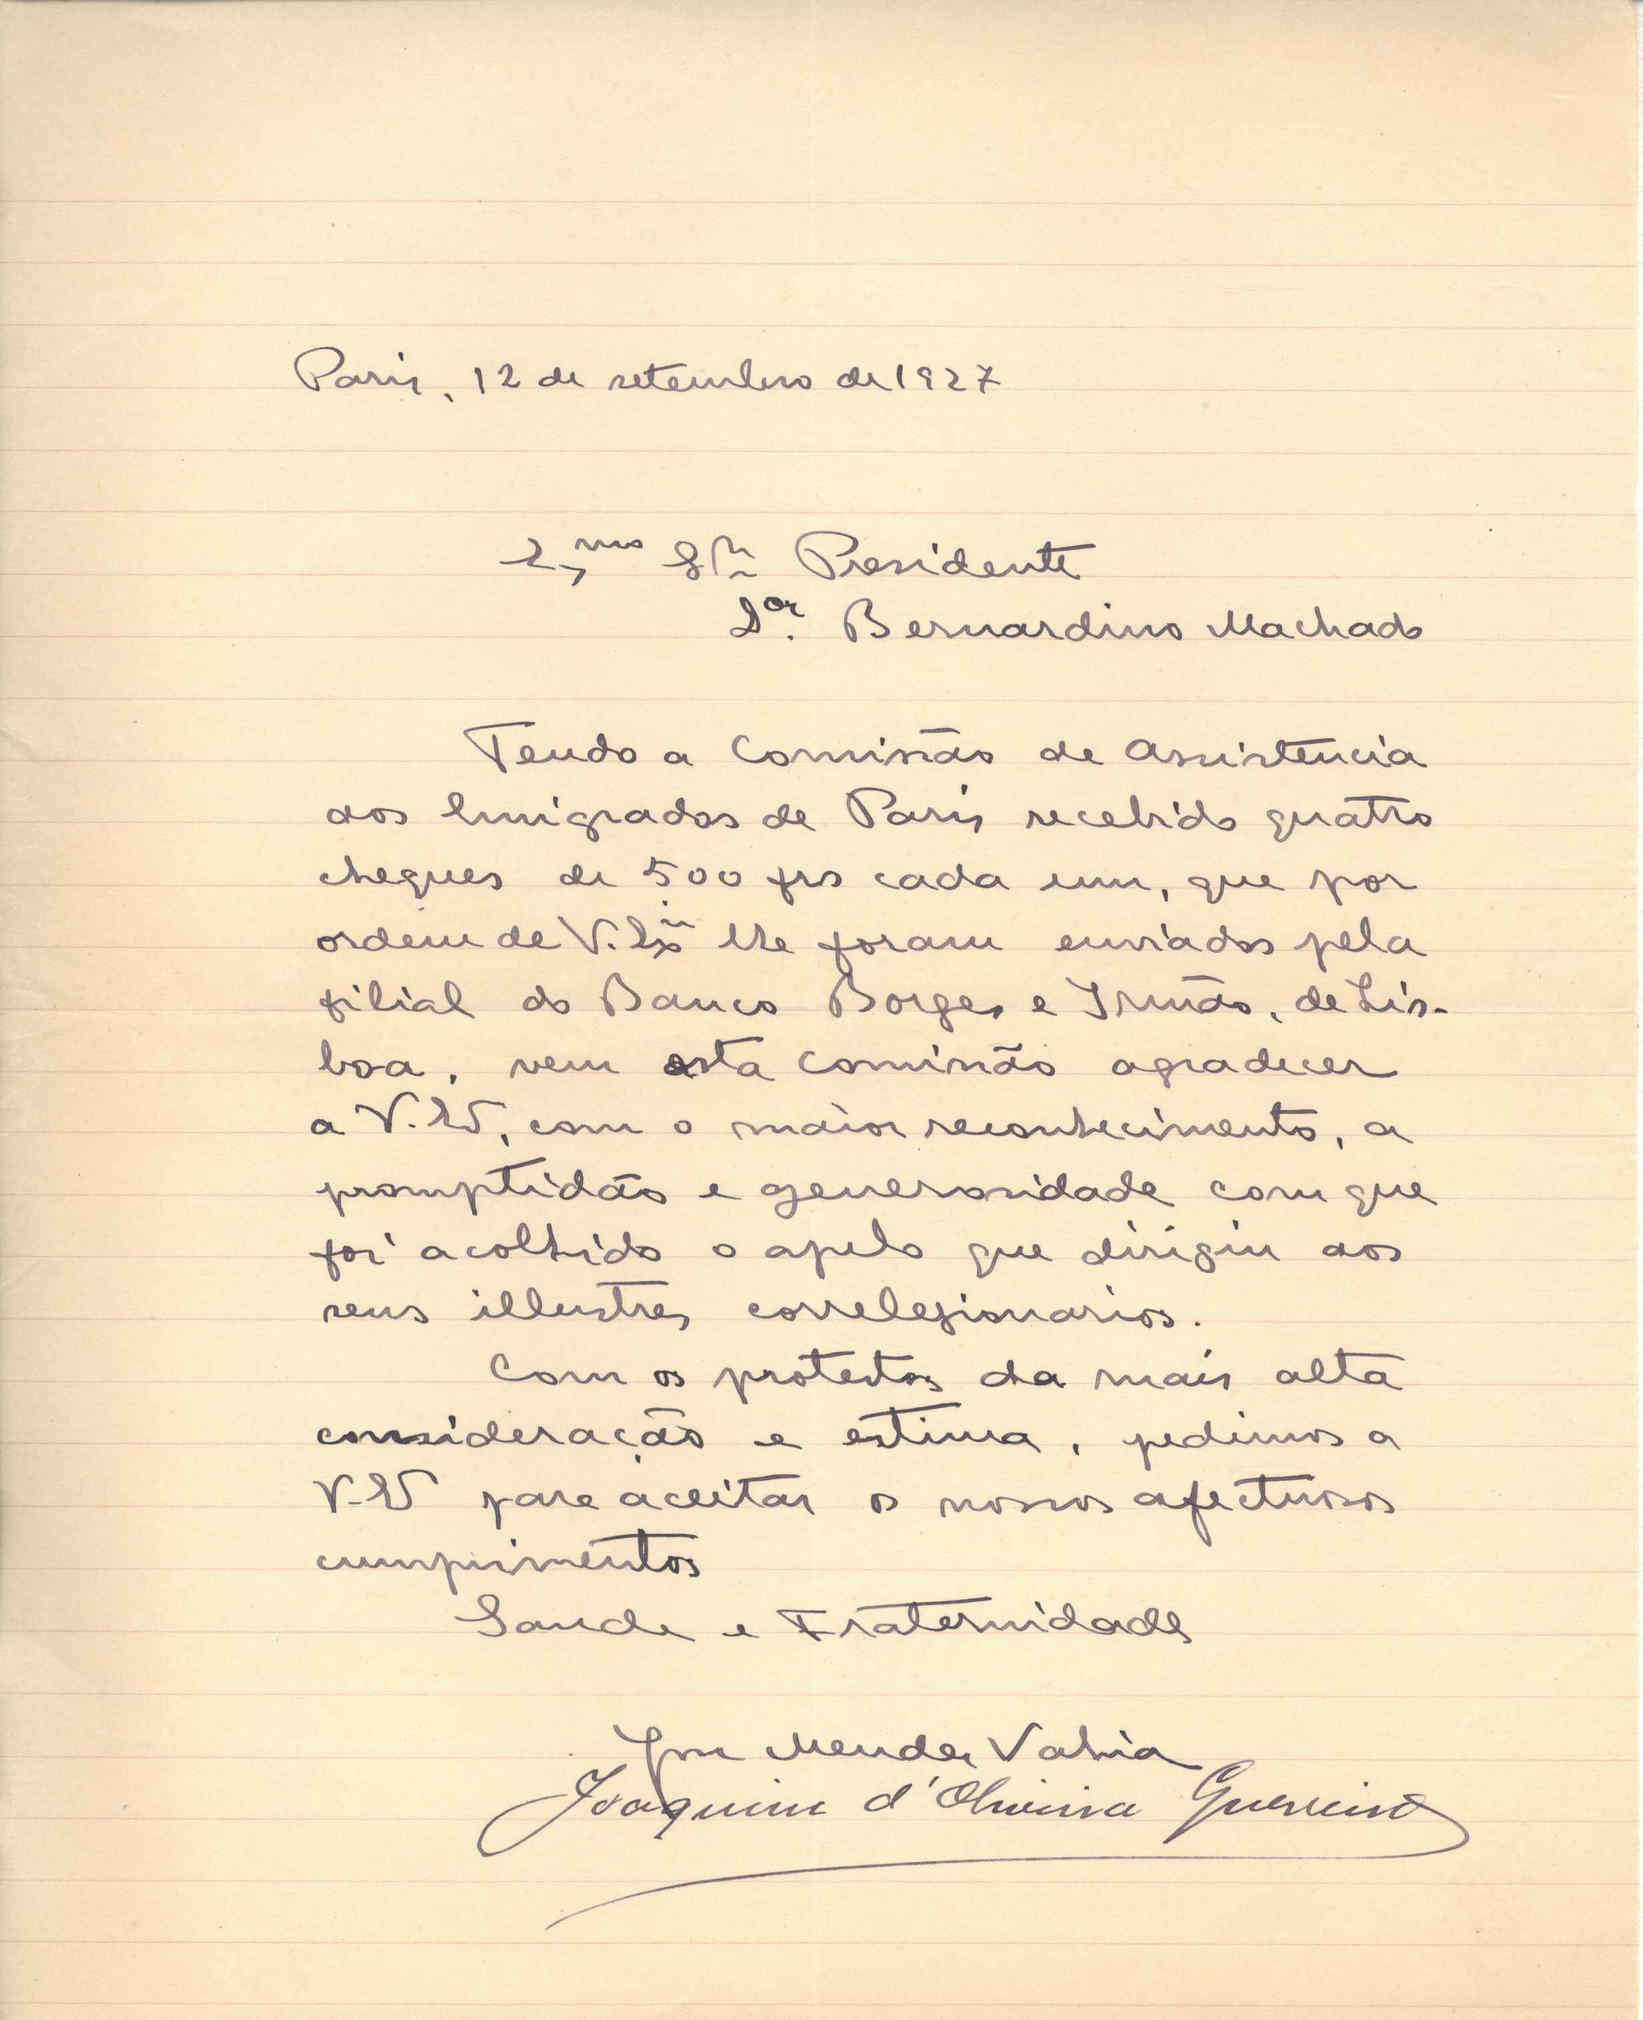 Paris, 12 de setembro de 1927
Ex.mo Sr. Presidente
Dor. Bernardino Machado
Tendo a Comissão de Assistencia
aos Emigrados de Paris recebido quatro
cheques de 500 frs cada um, que por
ordem de V. Exa lhe foram enviados pela
filial do Banco Borges e Irmão, de Lis-
boa, vem esta Comissão agradecer
a V. Ex, com o maior reconhecimento, a
promptidão e generosidade com que
foi acolhido o apelo que dirigiu aos
seus illustres correlegionarios.
Com os protestos da mais alta
consideração e estima, pedimos a
V. Ex para aceitar os nossos afectuosos
cumprimentos
Saude e Fraternidade
Mendes Vahia
Joaquim d'Oliveira Guerreiro